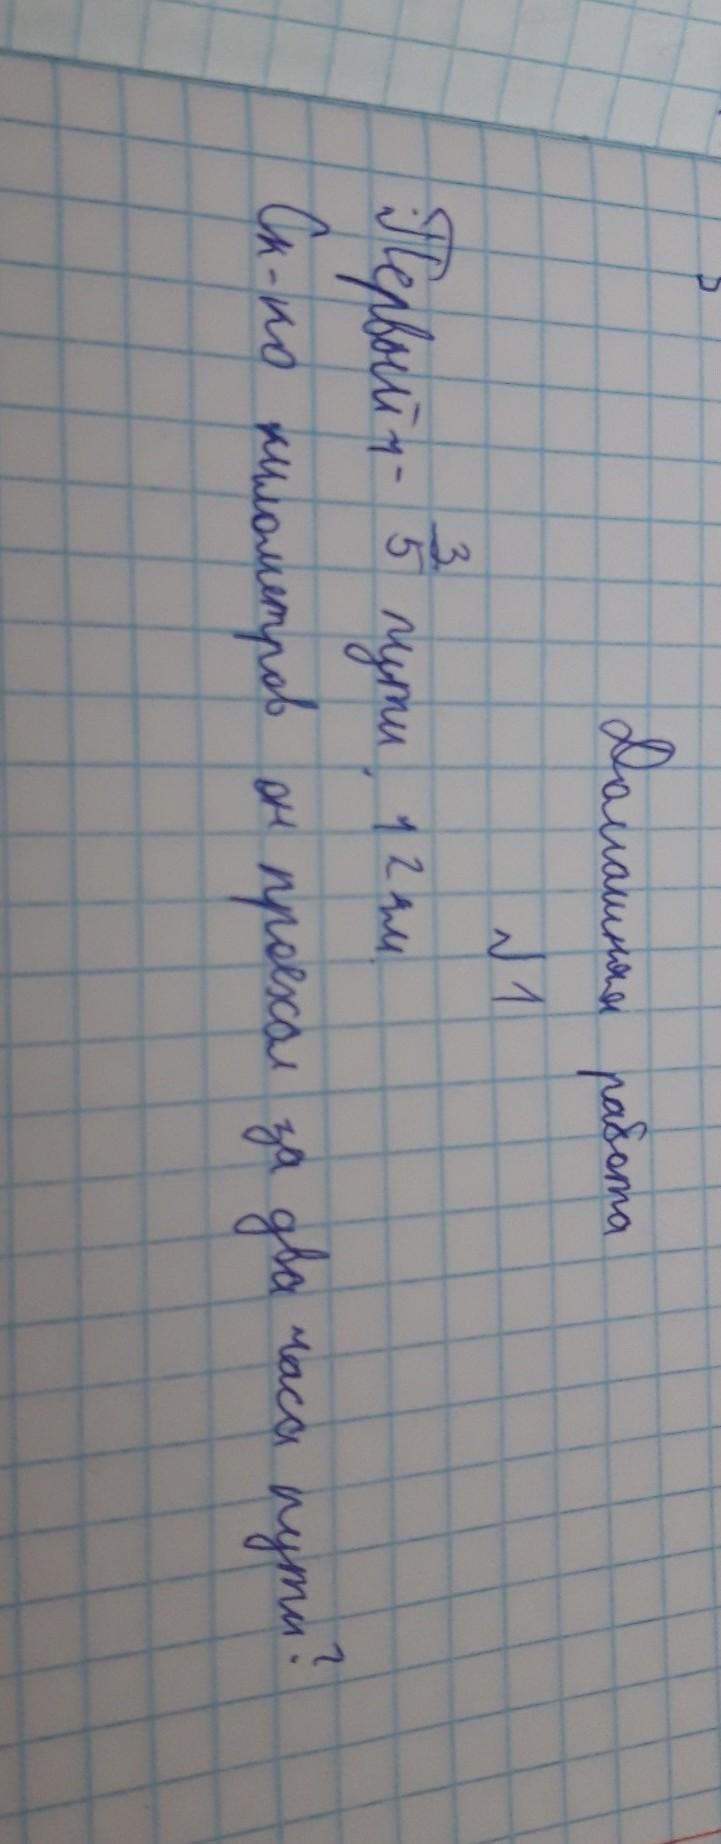 Домашняя работа
№ 1
Первый ч - 3/5 пути, 12 км.
Ск-ко километров он проехал за два часа пути?